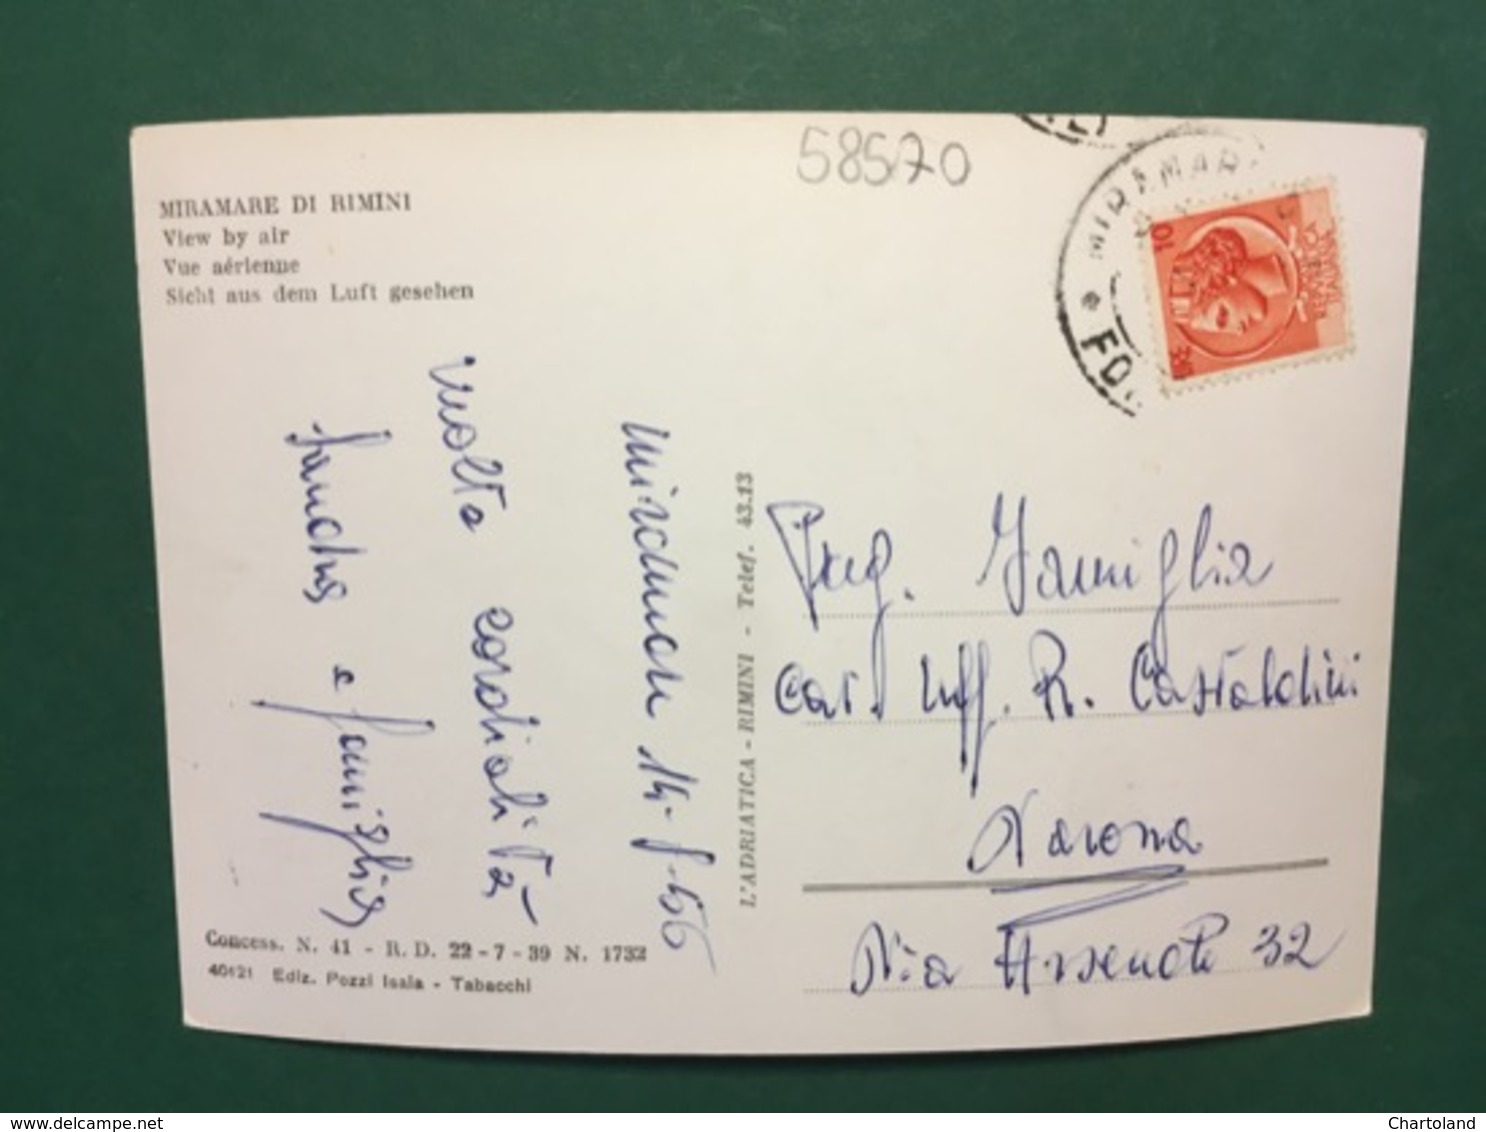 58570
MIRAMARE DI RIMINI
View by air
Vue aérienne
Sicht aus dem Luft gesehen
MIRAMAR
LIRE 10
REPUBBLICA
ITALIANA
Miramare 14-8-66
molta cordialità
Sandra e famiglia
L'ADRIATICA - RIMINI - Telef. 43.13
Preg. Famiglia
Cav. Uff. R. Castaldini
Verona
Via Arsenale 32
Concess. N. 41 - R. D. 22-7-39 N. 1732
40121 Ediz. Pozzi Isala - Tabacchi
delcampe.net
Chartoland